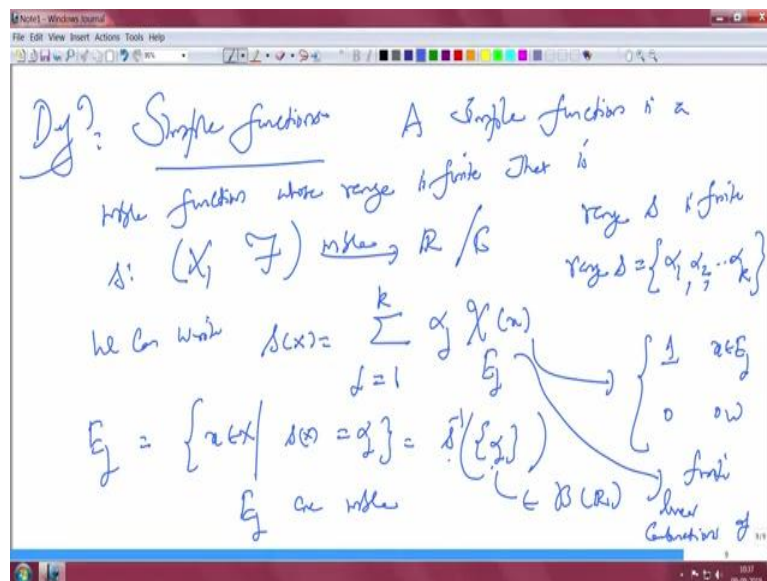 Note1 - Windows Journal
File Edit View Insert Actions Tools Help
Defn: Simple functions A simple function is a
mble function whose range is finite That is
s: (X, F) mble → R / C range s is finite
range s = {α1, α2, ... αk}
We can write s(x) = Σ_{j=1}^{k} αj χ_{Ej}(x) { 1 x∈Ej
0 ow
Ej = {x∈X | s(x) = αj} = s⁻¹({αj})
∈ B(R)
Ej are mble
finite
linear
Combinations of
9/9
10:37